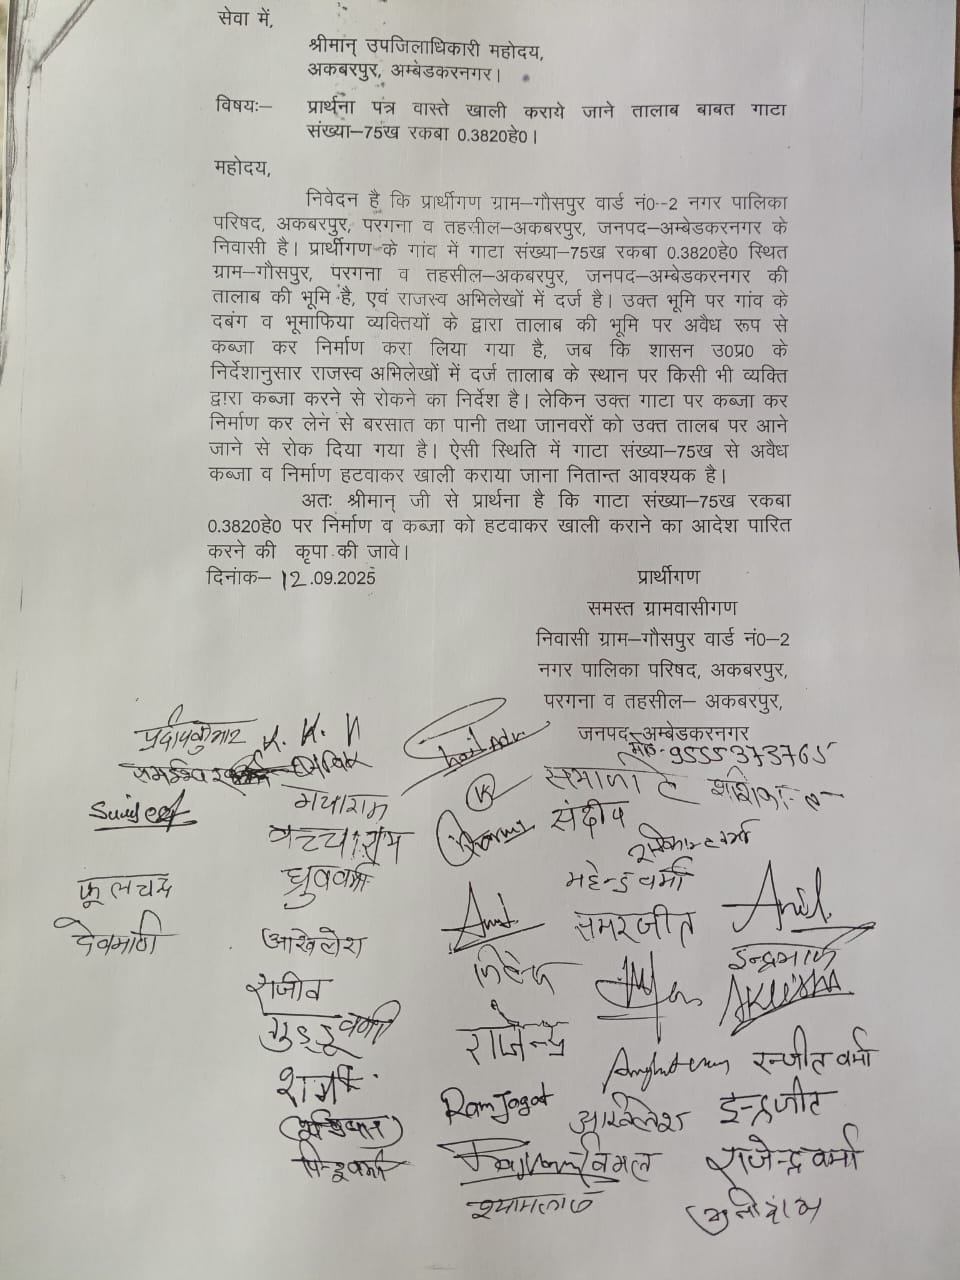 सेवा में,
श्रीमान् उपजिलाधिकारी महोदय,
अकबरपुर, अम्बेडकरनगर।
विषयः– प्रार्थना पत्र वास्ते खाली कराये जाने तालाब बाबत गाटा
संख्या–75ख रकबा 0.3820हे0।
महोदय,
निवेदन है कि प्रार्थीगण ग्राम–गौसपुर वार्ड नं0–2 नगर पालिका
परिषद, अकबरपुर, परगना व तहसील–अकबरपुर, जनपद–अम्बेडकरनगर के
निवासी है। प्रार्थीगण के गांव में गाटा संख्या–75ख रकबा 0.3820हे0 स्थित
ग्राम–गौसपुर, परगना व तहसील–अकबरपुर, जनपद–अम्बेडकरनगर की
तालाब की भूमि है, एवं राजस्व अभिलेखों में दर्ज है। उक्त भूमि पर गांव के
दबंग व भूमाफिया व्यक्तियों के द्वारा तालाब की भूमि पर अवैध रूप से
कब्जा कर निर्माण करा लिया गया है, जब कि शासन उ0प्र0 के
निर्देशानुसार राजस्व अभिलेखों में दर्ज तालाब के स्थान पर किसी भी व्यक्ति
द्वारा कब्जा करने से रोकने का निर्देश है। लेकिन उक्त गाटा पर कब्जा कर
निर्माण कर लेने से बरसात का पानी तथा जानवरों को उक्त तालब पर आने
जाने से रोक दिया गया है। ऐसी स्थिति में गाटा संख्या–75ख से अवैध
कब्जा व निर्माण हटवाकर खाली कराया जाना नितान्त आवश्यक है।
अतः श्रीमान् जी से प्रार्थना है कि गाटा संख्या–75ख रकबा
0.3820हे0 पर निर्माण व कब्जा को हटवाकर खाली कराने का आदेश पारित
करने की कृपा की जावे।
दिनांक– 12.09.2025
प्रार्थीगण
समस्त ग्रामवासीगण
निवासी ग्राम–गौसपुर वार्ड नं0–2
नगर पालिका परिषद, अकबरपुर,
परगना व तहसील– अकबरपुर,
जनपद–अम्बेडकरनगर
मो0- 9555373765
प्रदीपकुमार
गयाराम
बच्चाराम
संदीप
ध्रुववर्मा
महेन्द्र वर्मा
फूलचन्द
समरजीत
Anil
अखिलेश
राजीव
गुड्डू वर्मा
राजेन्द्र
रन्जीत वर्मा
Ram Jagat
अखिलेश
इन्द्रजीत
पिन्टू वर्मा
विमल
राजेन्द्र वर्मा
श्यामलाल